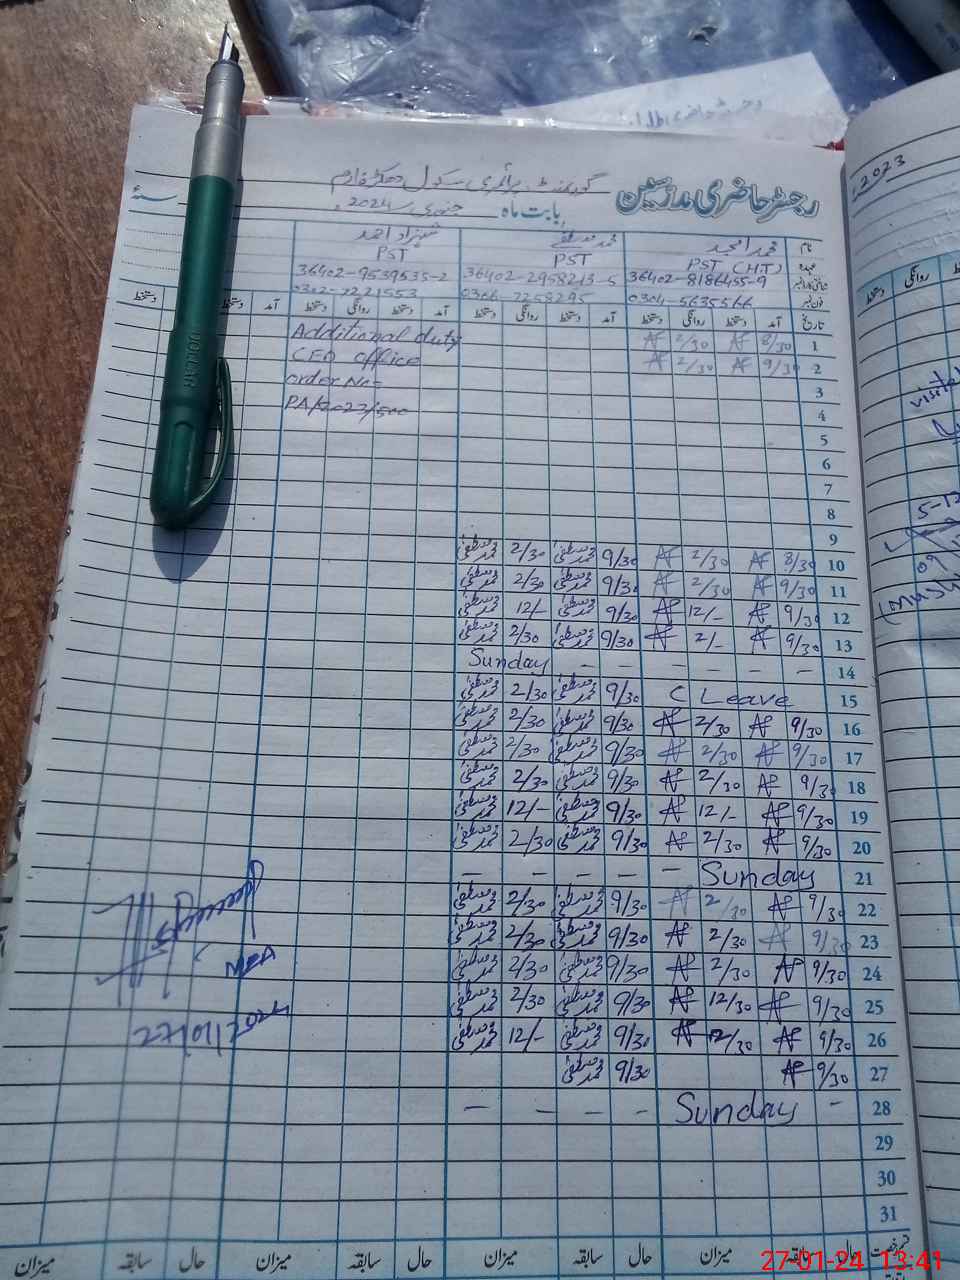 رجسٹر حاضری مدرسین گورنمنٹ پرائمری سکول دھکڑ فارم
بابت ماہ جنوری 2024ء سنہ
نام محمد امجد محمد مصطفےٰ شہزاد احمد
عہدہ PST (H.T) PST PST
شناختی کارڈ نمبر 36402-8186455-9 36402-2958213-5 36402-9539535-2
فون نمبر 0304-5635566 0306-7258295 0302-7221553
تاریخ آمد دستخط روانگی دستخط آمد دستخط روانگی دستخط آمد دستخط روانگی دستخط آمد دستخط
1 8/30 2/30 Additional duty
2 9/30 2/30 CEO office
3 order No=
4 PA/2023/500
5
6
7
8
9
10 8/30 2/30 9/30 محمد مصطفیٰ 2/30 محمد مصطفیٰ
11 9/30 2/30 9/30 محمد مصطفیٰ 2/30 محمد مصطفیٰ
12 9/30 12/- 9/30 محمد مصطفیٰ 12/- محمد مصطفیٰ
13 9/30 2/- 9/30 محمد مصطفیٰ 2/30 محمد مصطفیٰ
14 - - - - - - Sunday
15 C Leave 9/30 محمد مصطفیٰ 2/30 محمد مصطفیٰ
16 9/30 2/30 9/30 محمد مصطفیٰ 2/30 محمد مصطفیٰ
17 9/30 2/30 9/30 محمد مصطفیٰ 2/30 محمد مصطفیٰ
18 9/30 2/30 9/30 محمد مصطفیٰ 2/30 محمد مصطفیٰ
19 9/30 12/- 9/30 محمد مصطفیٰ 12/- محمد مصطفیٰ
20 9/30 2/30 9/30 محمد مصطفیٰ 2/30 محمد مصطفیٰ
21 Sunday - - - - -
22 9/30 2/30 9/30 محمد مصطفیٰ 2/30 محمد مصطفیٰ
23 9/30 2/30 9/30 محمد مصطفیٰ 2/30 محمد مصطفیٰ
24 9/30 2/30 9/30 محمد مصطفیٰ 2/30 محمد مصطفیٰ
25 9/30 12/30 9/30 محمد مصطفیٰ 2/30 محمد مصطفیٰ
26 9/30 12/30 9/30 محمد مصطفیٰ 12/- محمد مصطفیٰ
27 9/30 9/30 محمد مصطفیٰ
28 - Sunday - - - -
29
30
31
MEA
27/01/2024
حال سابقہ میزان حال سابقہ میزان حال سابقہ میزان حال سابقہ میزان
2023
روانگی دستخط
27-01-24 13:41